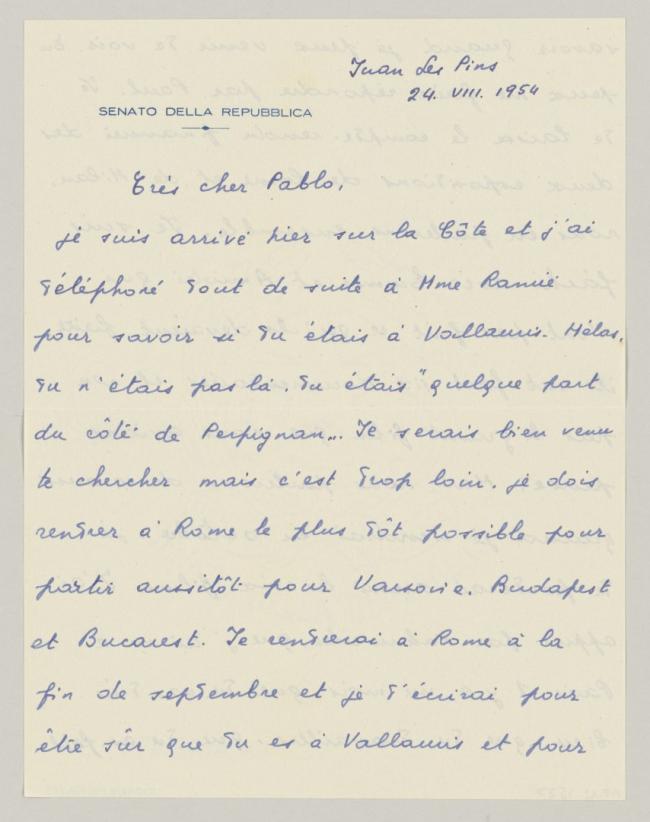 Juan Les Pins
24. VIII. 1954
SENATO DELLA REPUBBLICA
Trés cher Pablo,
je suis arrivé hier sur la Côte et j'ai
téléphoné tout de suite à Mme Ramié
pour savoir si tu étais à Vallauris. Hélas,
tu n'étais pas là. Tu étais "quelque part
du côté de Perpignan... Je serais bien venu
te chercher mais c'est trop loin. je dois
rentrer à Rome le plus tôt possible pour
partir aussitôt pour Varsovie. Budapest
et Bucarest. Je rentrerai à Rome à la
fin de septembre et je t'écrirai pour
être sûr que tu es à Vallauris et pour